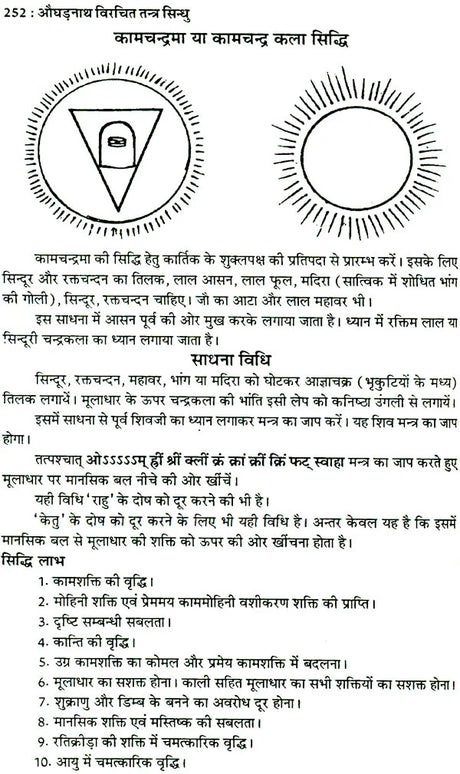 252 : औघड़नाथ विरचित तन्त्र सिन्धु
कामचन्द्रमा या कामचन्द्र कला सिद्धि
कामचन्द्रमा की सिद्धि हेतु कार्तिक के शुक्लपक्ष की प्रतिपदा से प्रारम्भ करें। इसके लिए
सिन्दूर और रक्तचन्दन का तिलक, लाल आसन, लाल फूल, मदिरा (सात्विक में शोधित भांग
की गोली), सिन्दूर, रक्तचन्दन चाहिए। जौ का आटा और लाल महावर भी।
इस साधना में आसन पूर्व की ओर मुख करके लगाया जाता है। ध्यान में रक्तिम लाल या
सिन्दूरी चन्द्रकला का ध्यान लगाया जाता है।
साधना विधि
सिन्दूर, रक्तचन्दन, महावर, भांग या मदिरा को घोटकर आज्ञाचक्र (भृकुटियों के मध्य)
तिलक लगायें। मूलाधार के ऊपर चन्द्रकला की भांति इसी लेप को कनिष्ठा उंगली से लगायें।
इसमें साधना से पूर्व शिवजी का ध्यान लगाकर मन्त्र का जाप करें। यह शिव मन्त्र का जाप
होगा।
तत्पश्चात् ओऽऽऽऽऽम् ह्रीं श्रीं क्लीं क्रं क्रां क्रीं क्रिं फट् स्वाहा मन्त्र का जाप करते हुए
मूलाधार पर मानसिक बल नीचे की ओर खींचें।
यही विधि 'राहु' के दोष को दूर करने की भी है।
'केतु' के दोष को दूर करने के लिए भी यही विधि है। अन्तर केवल यह है कि इसमें
मानसिक बल से मूलाधार की शक्ति को ऊपर की ओर खींचना होता है।
सिद्धि लाभ
1. कामशक्ति की वृद्धि।
2. मोहिनी शक्ति एवं प्रेममय काममोहिनी वशीकरण शक्ति की प्राप्ति।
3. दृष्टि सम्बन्धी सबलता।
4. कान्ति की वृद्धि।
5. उग्र कामशक्ति का कोमल और प्रमेय कामशक्ति में बदलना।
6. मूलाधार का सशक्त होना। काली सहित मूलाधार का सभी शक्तियों का सशक्त होना।
7. शुक्राणु और डिम्ब के बनने का अवरोध दूर होना।
8. मानसिक शक्ति एवं मस्तिष्क की सबलता।
9. रतिक्रीड़ा की शक्ति में चमत्कारिक वृद्धि।
10. आयु में चमत्कारिक वृद्धि।